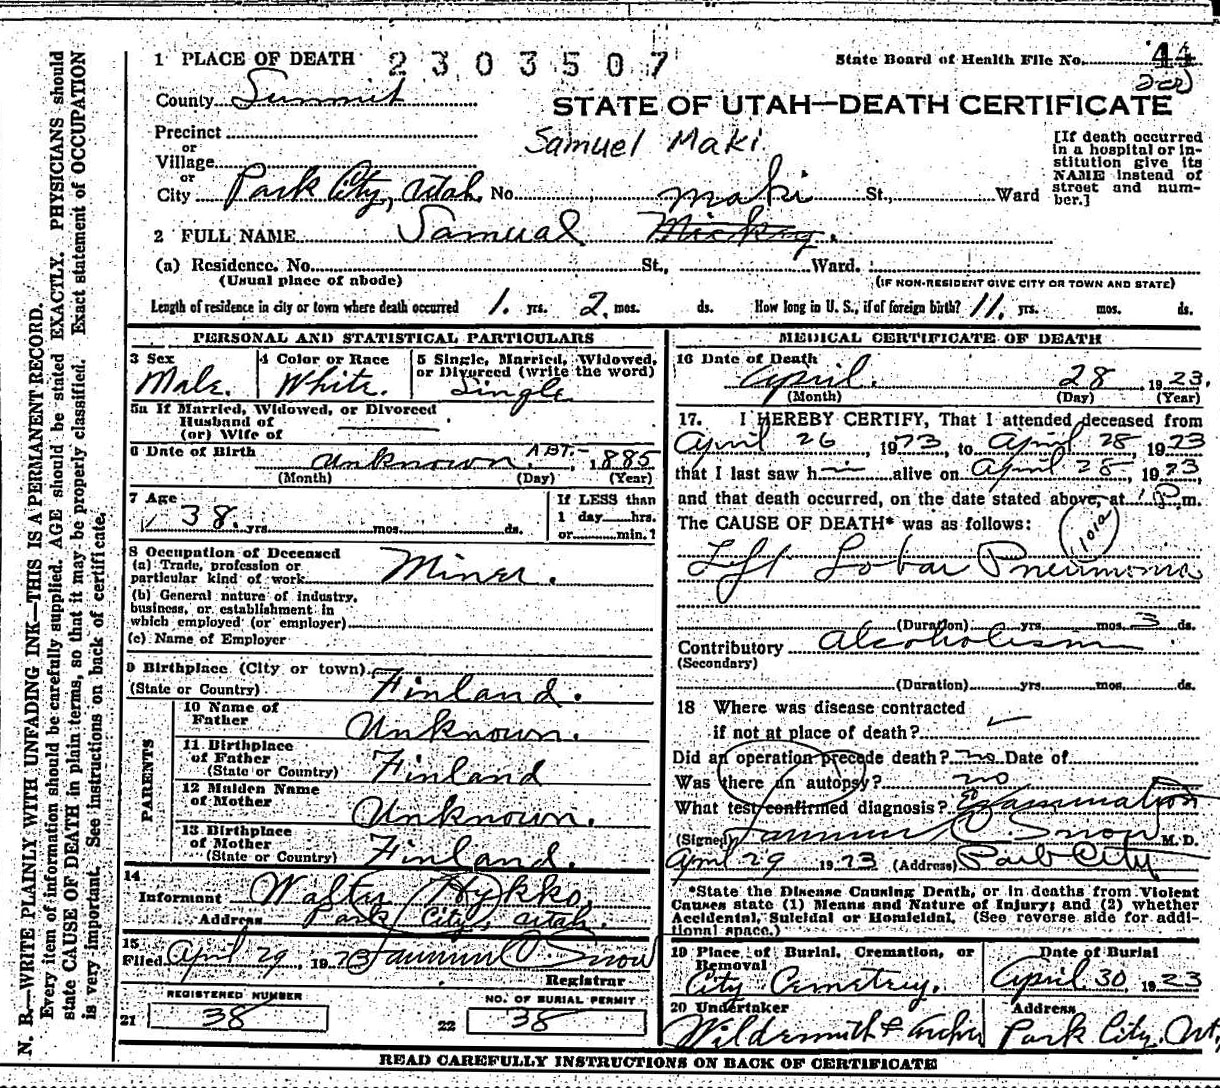 1 PLACE OF DEATH 2303507 State Board of Health File No. 44
County Summit
STATE OF UTAH—DEATH CERTIFICATE
Precinct
or
Village
or
City Park City, Utah. No. St., Ward
Samuel Maki
[If death occurred in a hospital or institution give its NAME instead of street and number.]
Maki
2 FULL NAME Samual Mickey.
(a) Residence. No. St., Ward.
(Usual place of abode) (IF NON-RESIDENT GIVE CITY OR TOWN AND STATE)
Length of residence in city or town where death occurred 1. yrs. 2. mos. ds. How long in U. S., if of foreign birth? 11. yrs. mos. ds.
PERSONAL AND STATISTICAL PARTICULARS
3 Sex 4 Color or Race 5 Single, Married, Widowed, or Divorced (write the word)
Male. White. Single
5a If Married, Widowed, or Divorced
Husband of
(or) Wife of
6 Date of Birth Unknown. ABT.- 1885
(Month) (Day) (Year)
7 Age If LESS than
38. yrs. mos. ds. 1 day hrs.
or min.?
8 Occupation of Deceased
(a) Trade, profession or
particular kind of work Miner.
(b) General nature of industry,
business, or establishment in
which employed (or employer)
(c) Name of Employer
9 Birthplace (City or town)
(State or Country) Finland.
PARENTS
10 Name of
Father Unknown.
11 Birthplace
of Father
(State or Country) Finland
12 Maiden Name
of Mother Unknown.
13 Birthplace
of Mother
(State or Country) Finland.
14
Informant Walter Hykko,
Address Park City, Utah.
15
Filed April 29, 1923 Snow
Registrar
REGISTERED NUMBER NO. OF BURIAL PERMIT
21 38 22 38
MEDICAL CERTIFICATE OF DEATH
16 Date of Death
April. 28, 1923.
(Month) (Day) (Year)
17. I HEREBY CERTIFY, That I attended deceased from
April 26, 1923 to April 28, 1923
that I last saw h alive on April 28, 1923,
and that death occurred, on the date stated above, at 1 P. m.
The CAUSE OF DEATH* was as follows: 101a
Left Lobar Pneumonia
(Duration) yrs. mos. 3 ds.
Contributory Alcoholism
(Secondary)
(Duration) yrs. mos. ds.
18 Where was disease contracted
if not at place of death?
Did an operation precede death? no Date of
Was there an autopsy? no
What test confirmed diagnosis? Examination
(Signed) Snow M. D.
April 29 1923 (Address) Park City
*State the Disease Causing Death, or in deaths from Violent
Causes state (1) Means and Nature of Injury; and (2) whether
Accidental, Suicidal or Homicidal. (See reverse side for addi-
tional space.)
19 Place of Burial, Cremation, or Removal Date of Burial
City Cemetery. April 30, 1923
20 Undertaker Address
Wildersmith & Archer Park City, Ut.
READ CAREFULLY INSTRUCTIONS ON BACK OF CERTIFICATE
N. B.—WRITE PLAINLY WITH UNFADING INK—THIS IS A PERMANENT RECORD.
Every item of information should be carefully supplied. AGE should be stated EXACTLY. PHYSICIANS should
state CAUSE OF DEATH in plain terms, so that it may be properly classified. Exact statement of OCCUPATION
is very important. See instructions on back of certificate.